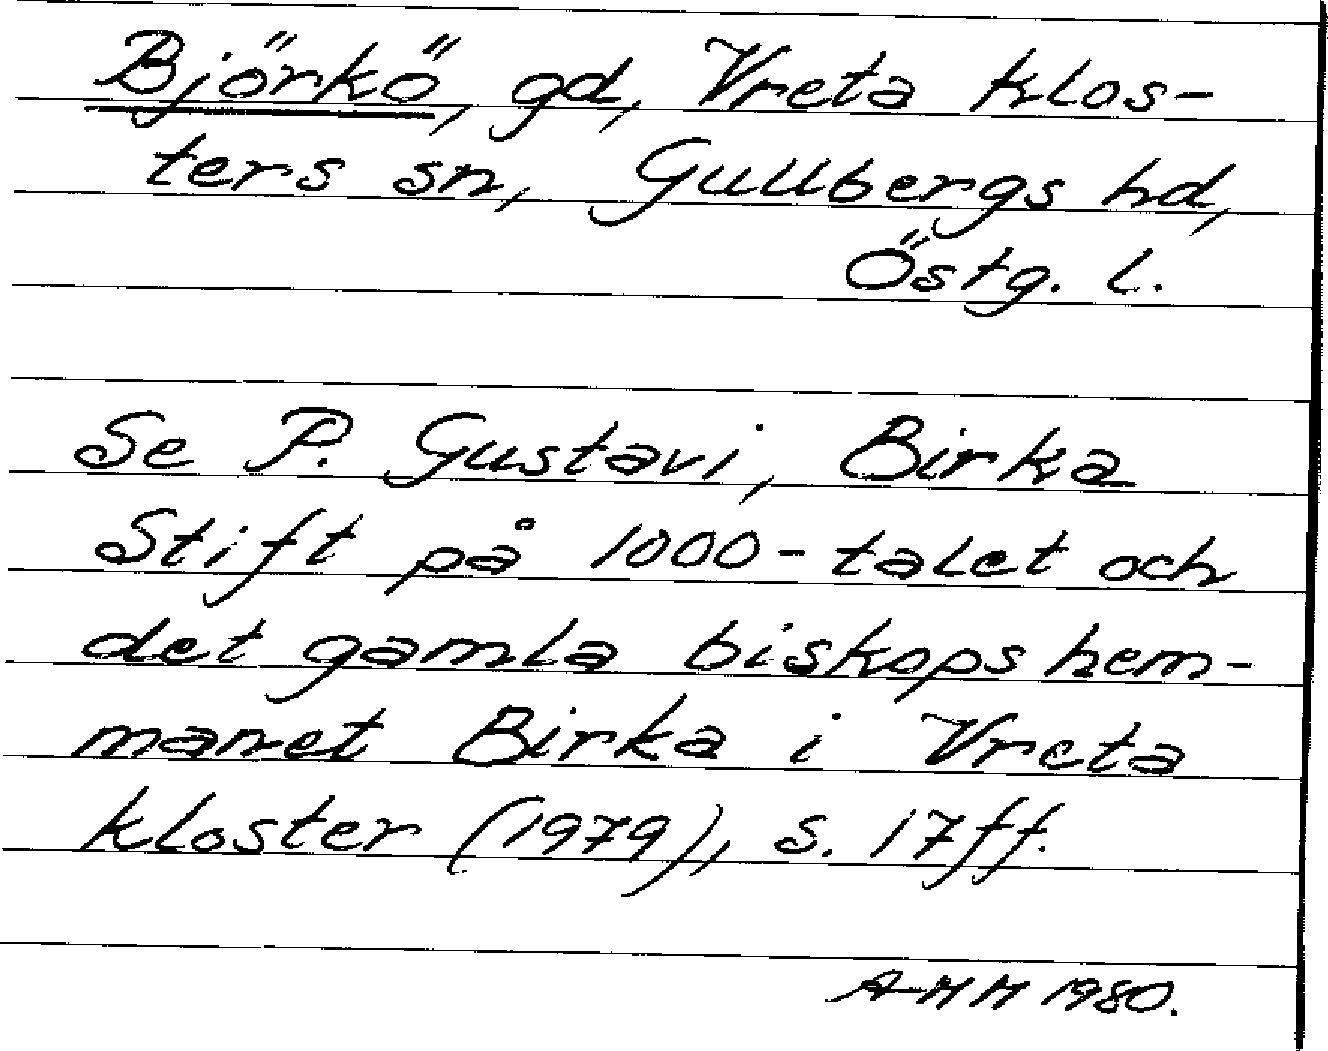 Björkö, gd, Vreta klos-
ters sn, Gullbergs hd,
Östg. l.
Se P. Gustavi, Birka
Stift på 1000-talet och
det gamla biskopshem-
manet Birka i Vreta
kloster (1979), s. 17 ff.
A-M M 1980.